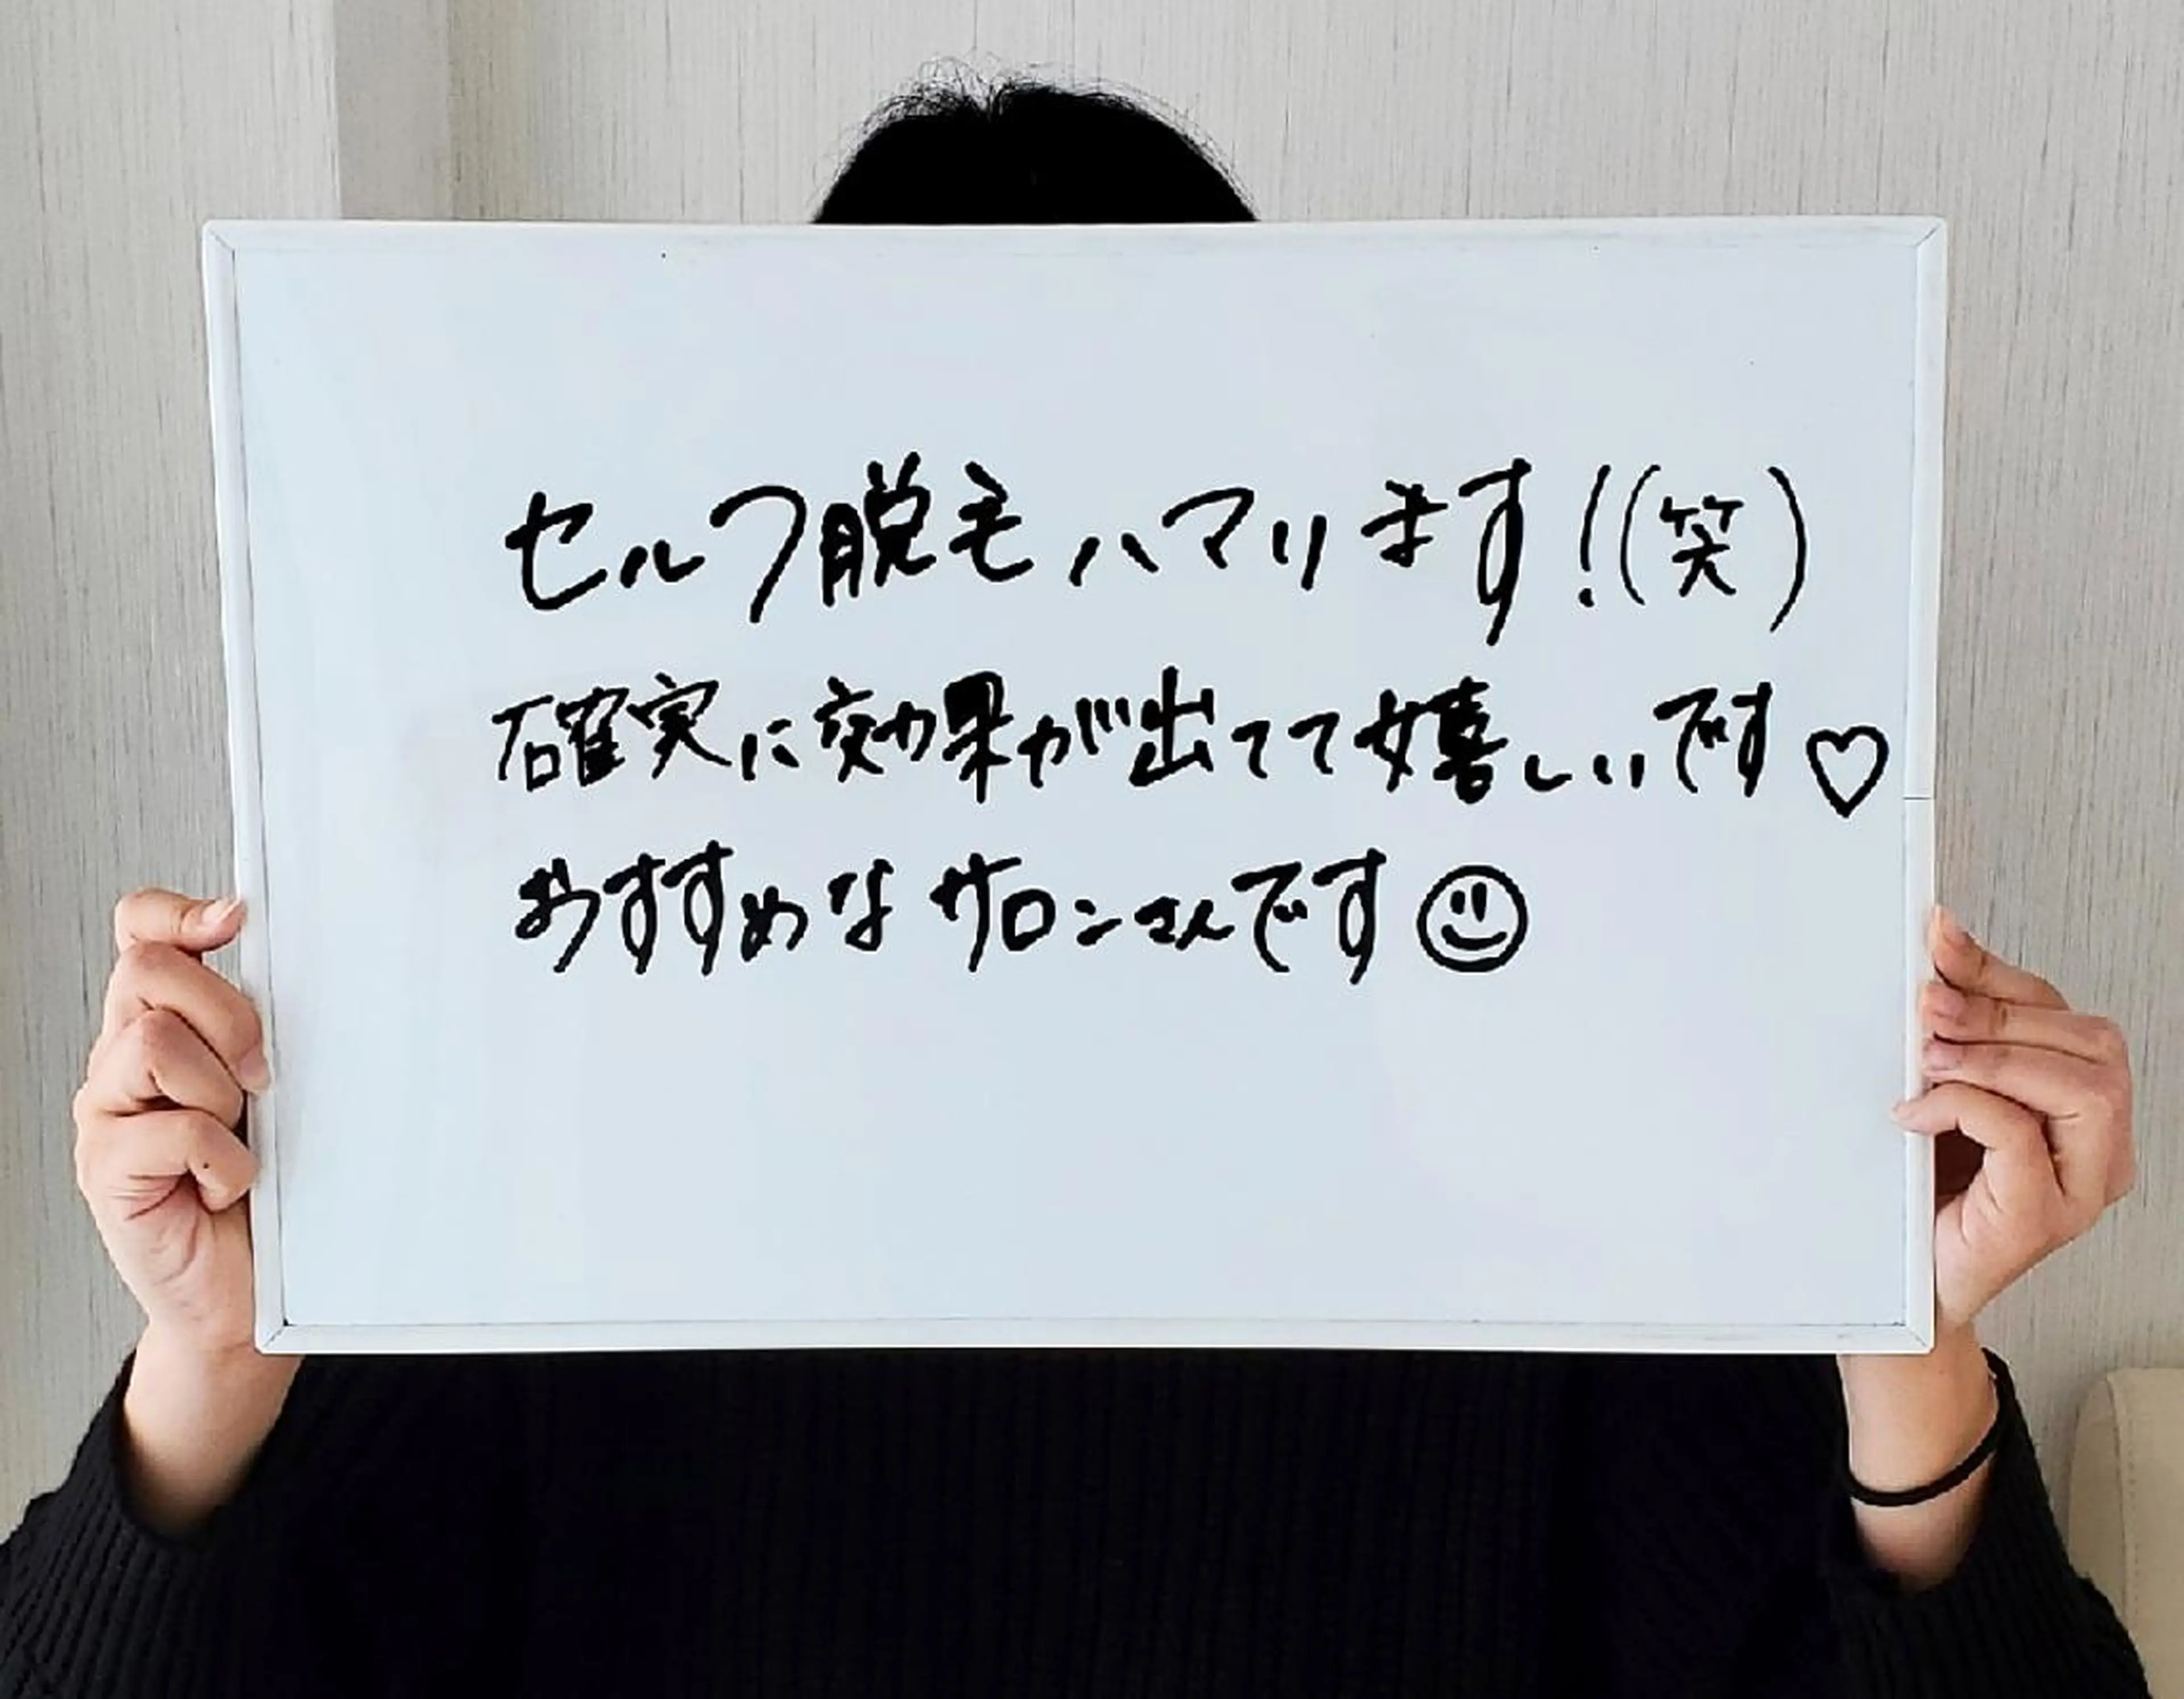 セルフ脱毛ハマります!(笑)
確実に効果が出てて嬉しいです♡
おすすめなサロンさんです☺